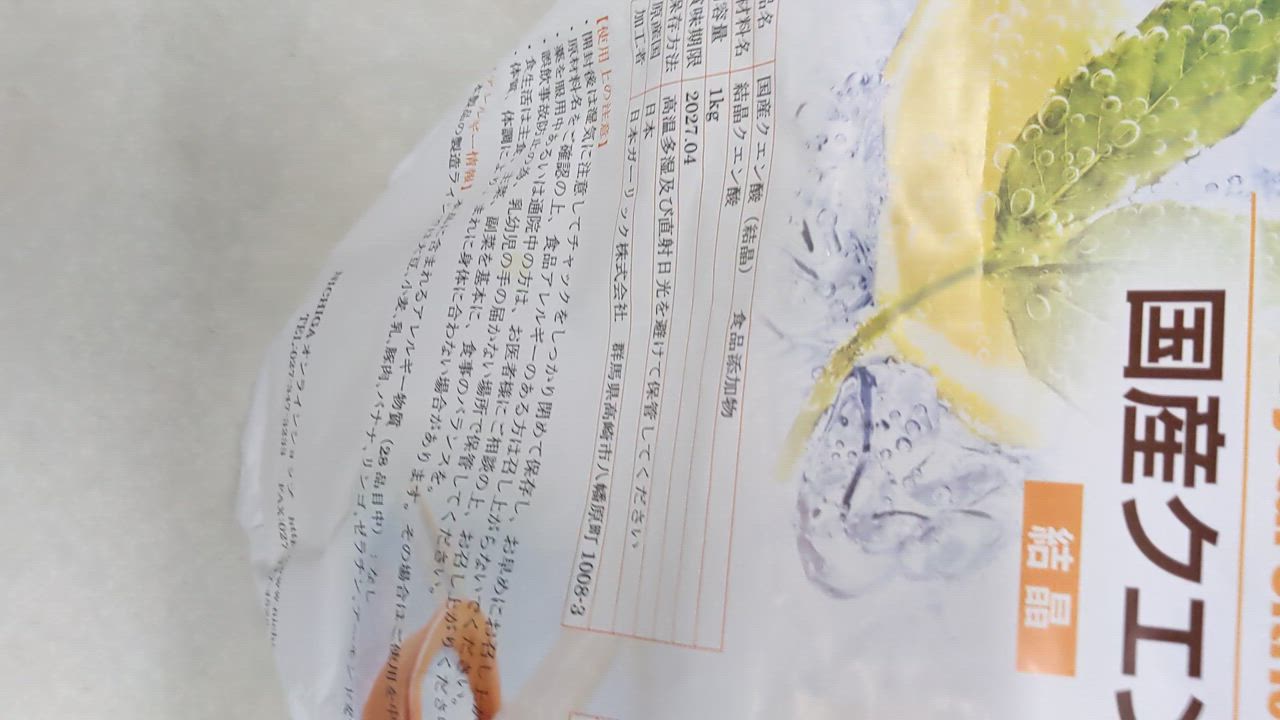 国産クエ
結晶
品名 国産クエン酸（結晶） 食品添加物
材料名 結晶クエン酸
容量 1kg
味期限 2027.04
保存方法 高温多湿及び直射日光を避けて保管してください。
原産国 日本
加工者 日本ガーリック株式会社 群馬県高崎市八幡原町1008-3
【使用上の注意】
・開封後は湿気に注意してチャックをしっかり閉めて保存し、お早めにお召し上が
・原材料名をご確認の上、食品アレルギーのある方は召し上がらないでください。
・薬を服用中あるいは通院中の方は、お医者様にご相談の上、お召し上がりくださ
・誤飲事故防止の為、乳幼児の手の届かない場所で保管してください。
・食生活は主食、主菜、副菜を基本に、食事のバランスを。
・体質、体調により、まれに身体に合わない場合があります。その場合はご使用を中
アレルギー情報】
本製品の製造ライ 含まれるアレルギー物質（28品目中）：なし
大豆、小麦、乳、豚肉、バナナ、リンゴ、ゼラチン、アーモンド
NICHIGA オンラインショップ
TEL:027 FAX:027